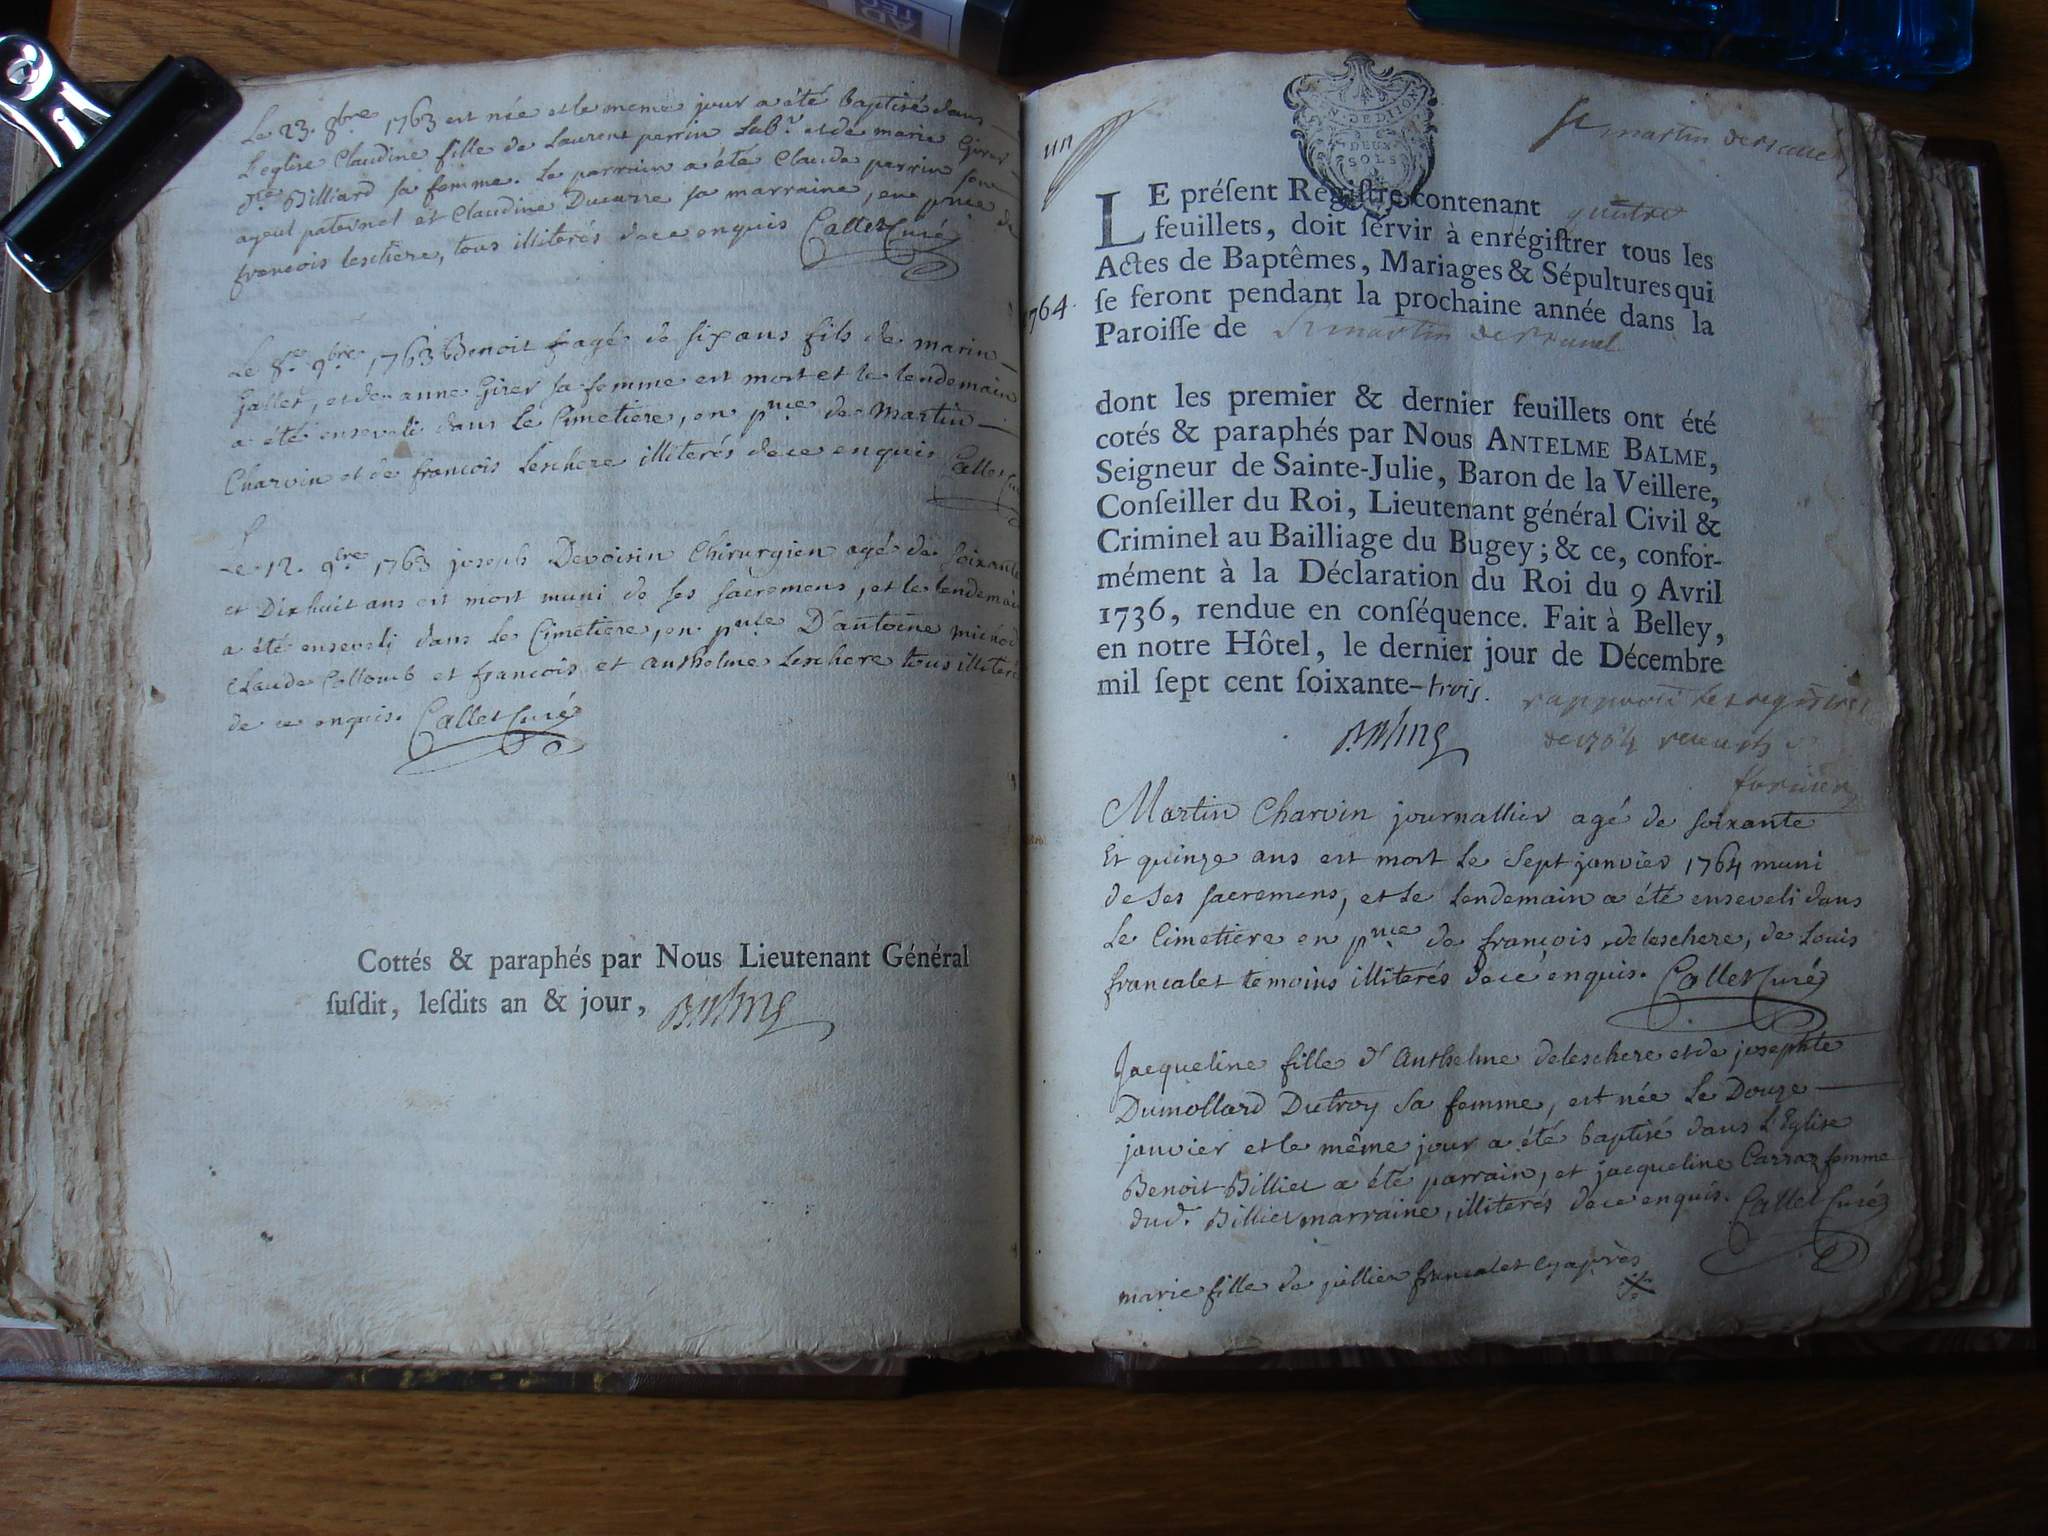 Le 23. 8bre 1763 est née et le meme jour a été baptisé dans
l'eglise Claudine fille de Laurent perrin Lab.r et de marie Girer
d.te Billiard sa femme. le parrain a été Claude perrin son
ayeul paternel et Claudine Ducarre sa marraine, en pnce de
francois leschere, tous illiterés de ce enquis Callet Curé
Le 8.e 9bre 1763 Benoit agé de six ans fils de marin
Gallet, et de anne Girer sa femme est mort et le lendemain
a été enseveli dans le Cimetiere, en pnce de Martin
Charvin et de francois Leschere illiterés de ce enquis Callet Cu
Le 12. 9bre 1763 joseph Devoisin Chirurgien agé de soixante
et Dixhuit ans est mort muni de ses sacremens, et le lendemain
a été enseveli dans le Cimetiere, en pnce D'antoine michod
Claude Collomb et francois et anthelme Leschere tous illiterés
de ce enquis. Callet Curé
Cottés & paraphés par Nous Lieutenant Général
ſuſdit, leſdits an & jour, Balme
un
GEN. DE DIJON
DEUX
SOLS
St martin de
LE préſent Régiſtre contenant quatre
feuillets, doit ſervir à enrégiſtrer tous les
Actes de Baptêmes, Mariages & Sépultures qui
1764. ſe feront pendant la prochaine année dans la
Paroiſſe de St martin de
dont les premier & dernier feuillets ont été
cotés & paraphés par Nous ANTELME BALME,
Seigneur de Sainte-Julie, Baron de la Veillere,
Conſeiller du Roi, Lieutenant général Civil &
Criminel au Bailliage du Bugey ; & ce, confor-
mément à la Déclaration du Roi du 9 Avril
1736, rendue en conſéquence. Fait à Belley,
en notre Hôtel, le dernier jour de Décembre
mil ſept cent ſoixante-trois.
rapporté les registres
Balme de 1764
Martin Charvin journallier agé de soixante
Et quinze ans est mort le sept janvier 1764 muni
de ses sacremens, et le lendemain a été enseveli dans
le Cimetiere en pnce de francois deleschere, de Louis
francalet temoins illiterés de ce enquis. Callet Curé
Jacqueline fille d'Anthelme deleschere et de josephte
Dumollard Dutroy sa femme, est née le Douze
janvier et le même jour a été baptisé dans L'Eglise
Benoit Billiet a été parrain, et jacqueline Carraz femme
dud. Billiet marraine, illiterés de ce enquis. Callet Curé
marie fille de jullien francalet cy après